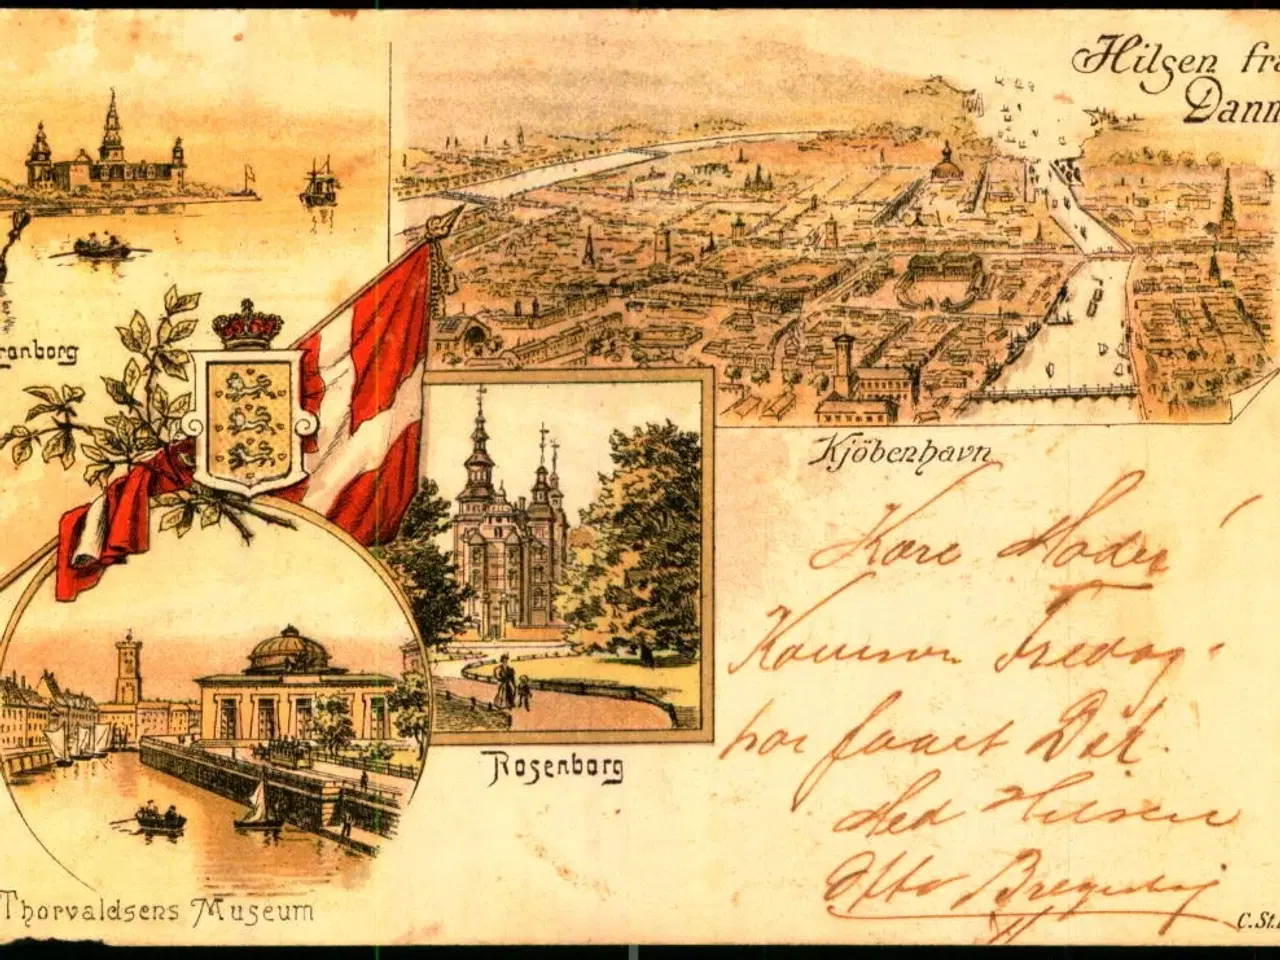 Hilsen fra
Danm
ranborg
Kjöbenhavn
Rosenborg
Thorvaldsens Museum
Kære Moder
Kommer Fredag
har faaet Dit
Med Hilsen
Otto
C.St.